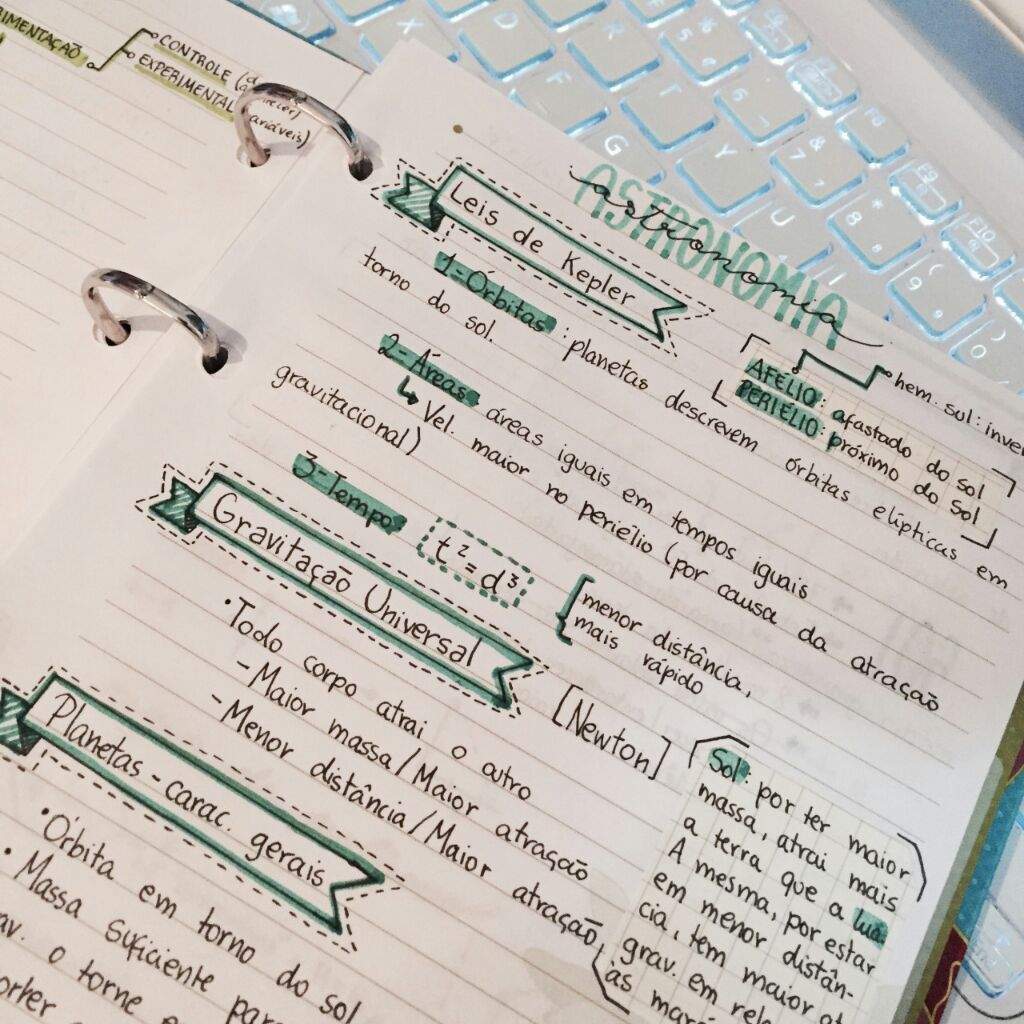 CONTROLE
EXPERIMENTAL
ASTRONOMIA
astronomia
Leis de Kepler
AFÉLIO: afastado do sol
PERIÉLIO: próximo do Sol
hem. sul:
1-Órbitas: planetas descrevem órbitas elípticas em
torno do sol.
2-Áreas áreas iguais em tempos iguais
↳ Vel. maior no periélio (por causa da atração
gravitacional)
3-Tempo t² = d³
menor distância,
mais rápido
Gravitação Universal
[Newton]
•Todo corpo atrai o outro
-Maior massa/Maior atração
-Menor distância/Maior atração,
Sol: por ter maior
massa, atrai mais
a terra que a lua.
A mesma, por estar
em menor distân-
cia, tem maior
grav. em
às
Planetas-carac. gerais
•Órbita em torno do sol
•Massa suficiente
o torne
F
G
D
R
T
Y
U
5
6
&
7
*
8
(
9
F8
F9
F10